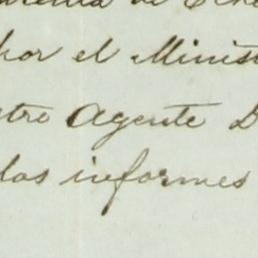 por el Minist
stro Agente D
los informes